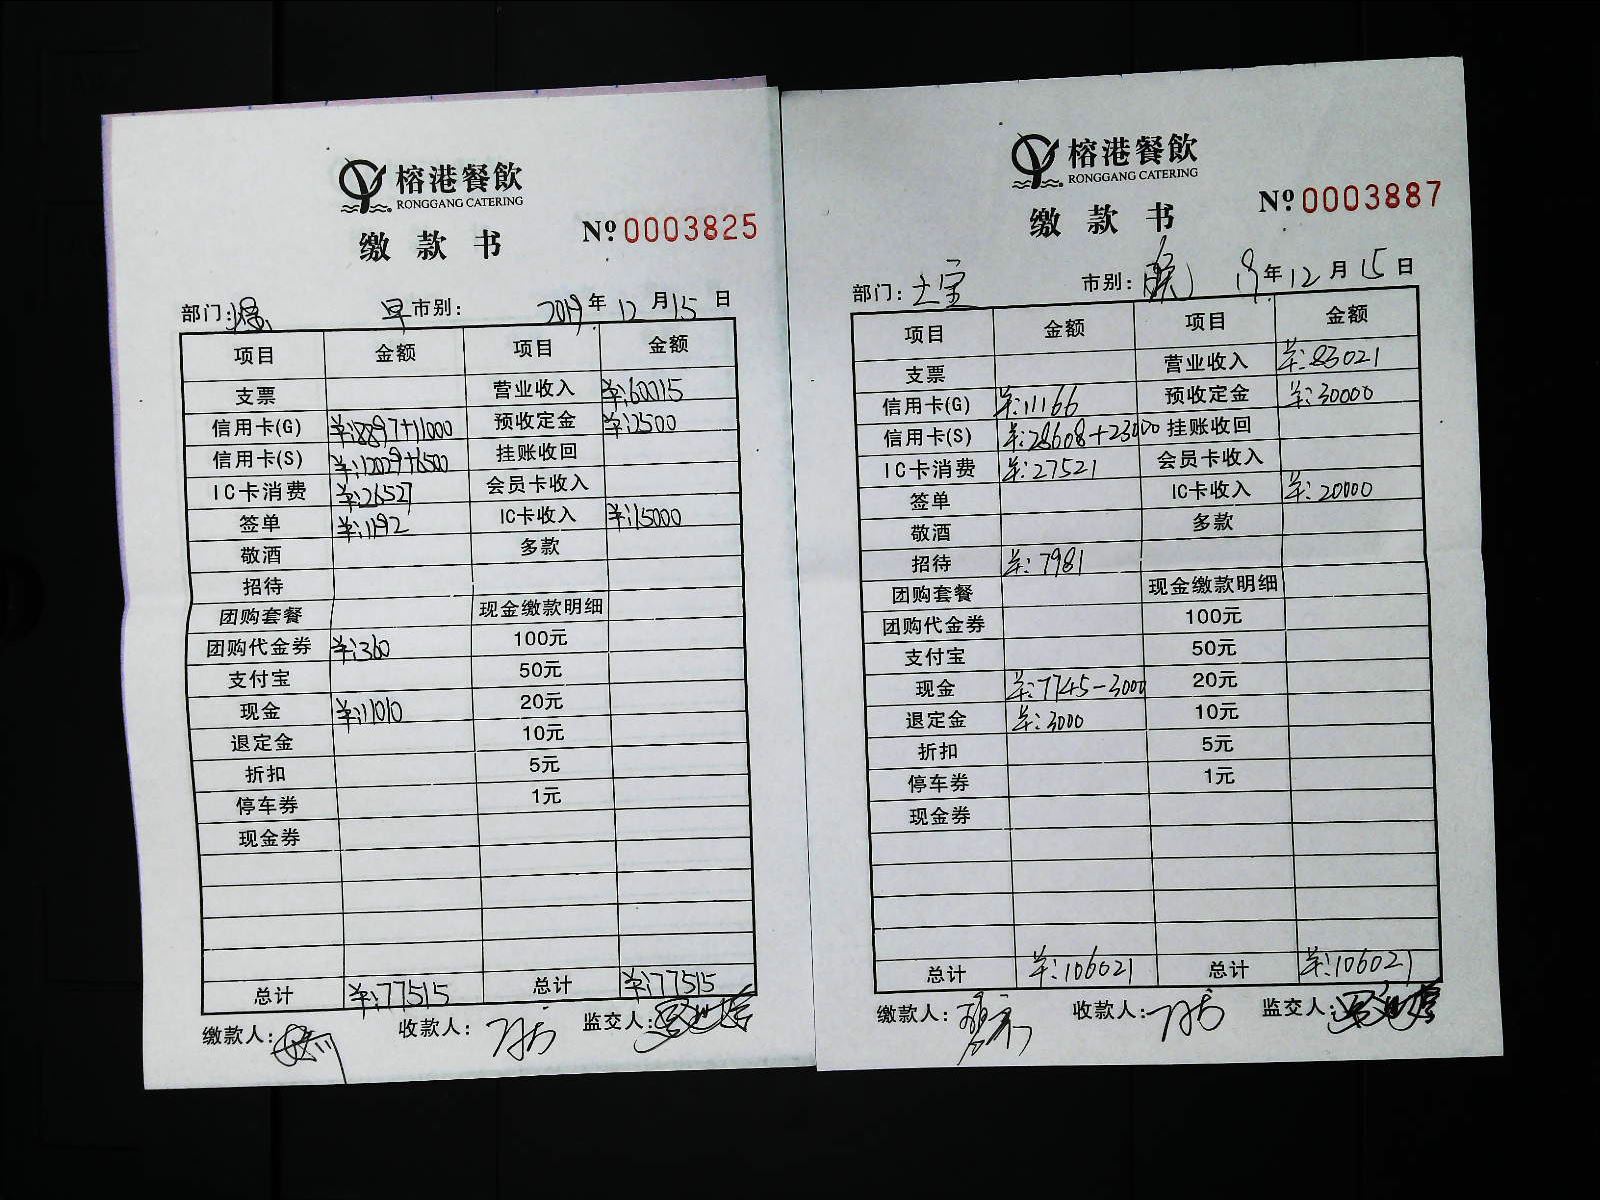 榕港餐飲
RONGGANG CATERING
缴款书 № 0003825
部门: 早市别: 2019年12月15日
项目 金额 项目 金额
支票 营业收入 ¥:60015
信用卡(G) ¥:8897+11000 预收定金 ¥:2500
信用卡(S) ¥:12029+6500 挂账收回
IC卡消费 ¥:26527 会员卡收入
签单 ¥:1192 IC卡收入 ¥:15000
敬酒 多款
招待
团购套餐 现金缴款明细
团购代金券 ¥:360 100元
支付宝 50元
现金 ¥:11010 20元
退定金 10元
折扣 5元
停车券 1元
现金券
总计 ¥:77515 总计 ¥:77515
缴款人: 收款人: 监交人:
榕港餐飲
RONGGANG CATERING
缴款书 № 0003887
部门: 市别: 19年12月15日
项目 金额 项目 金额
支票 营业收入 ¥:83021
信用卡(G) ¥:11166 预收定金 ¥:30000
信用卡(S) ¥:28608+23000 挂账收回
IC卡消费 ¥:27521 会员卡收入
签单 IC卡收入 ¥:20000
敬酒 多款
招待 ¥:7981
团购套餐 现金缴款明细
团购代金券 100元
支付宝 50元
现金 ¥:7745-3000 20元
退定金 ¥:3000 10元
折扣 5元
停车券 1元
现金券
总计 ¥:106021 总计 ¥:106021
缴款人: 收款人: 监交人: